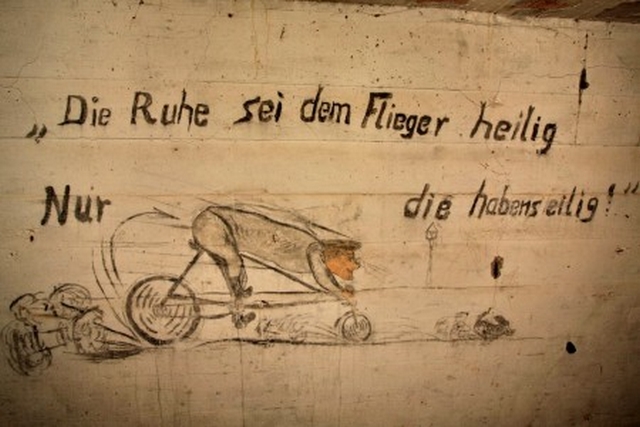 „Die Ruhe sei dem Flieger heilig
Nur die habens eilig!"